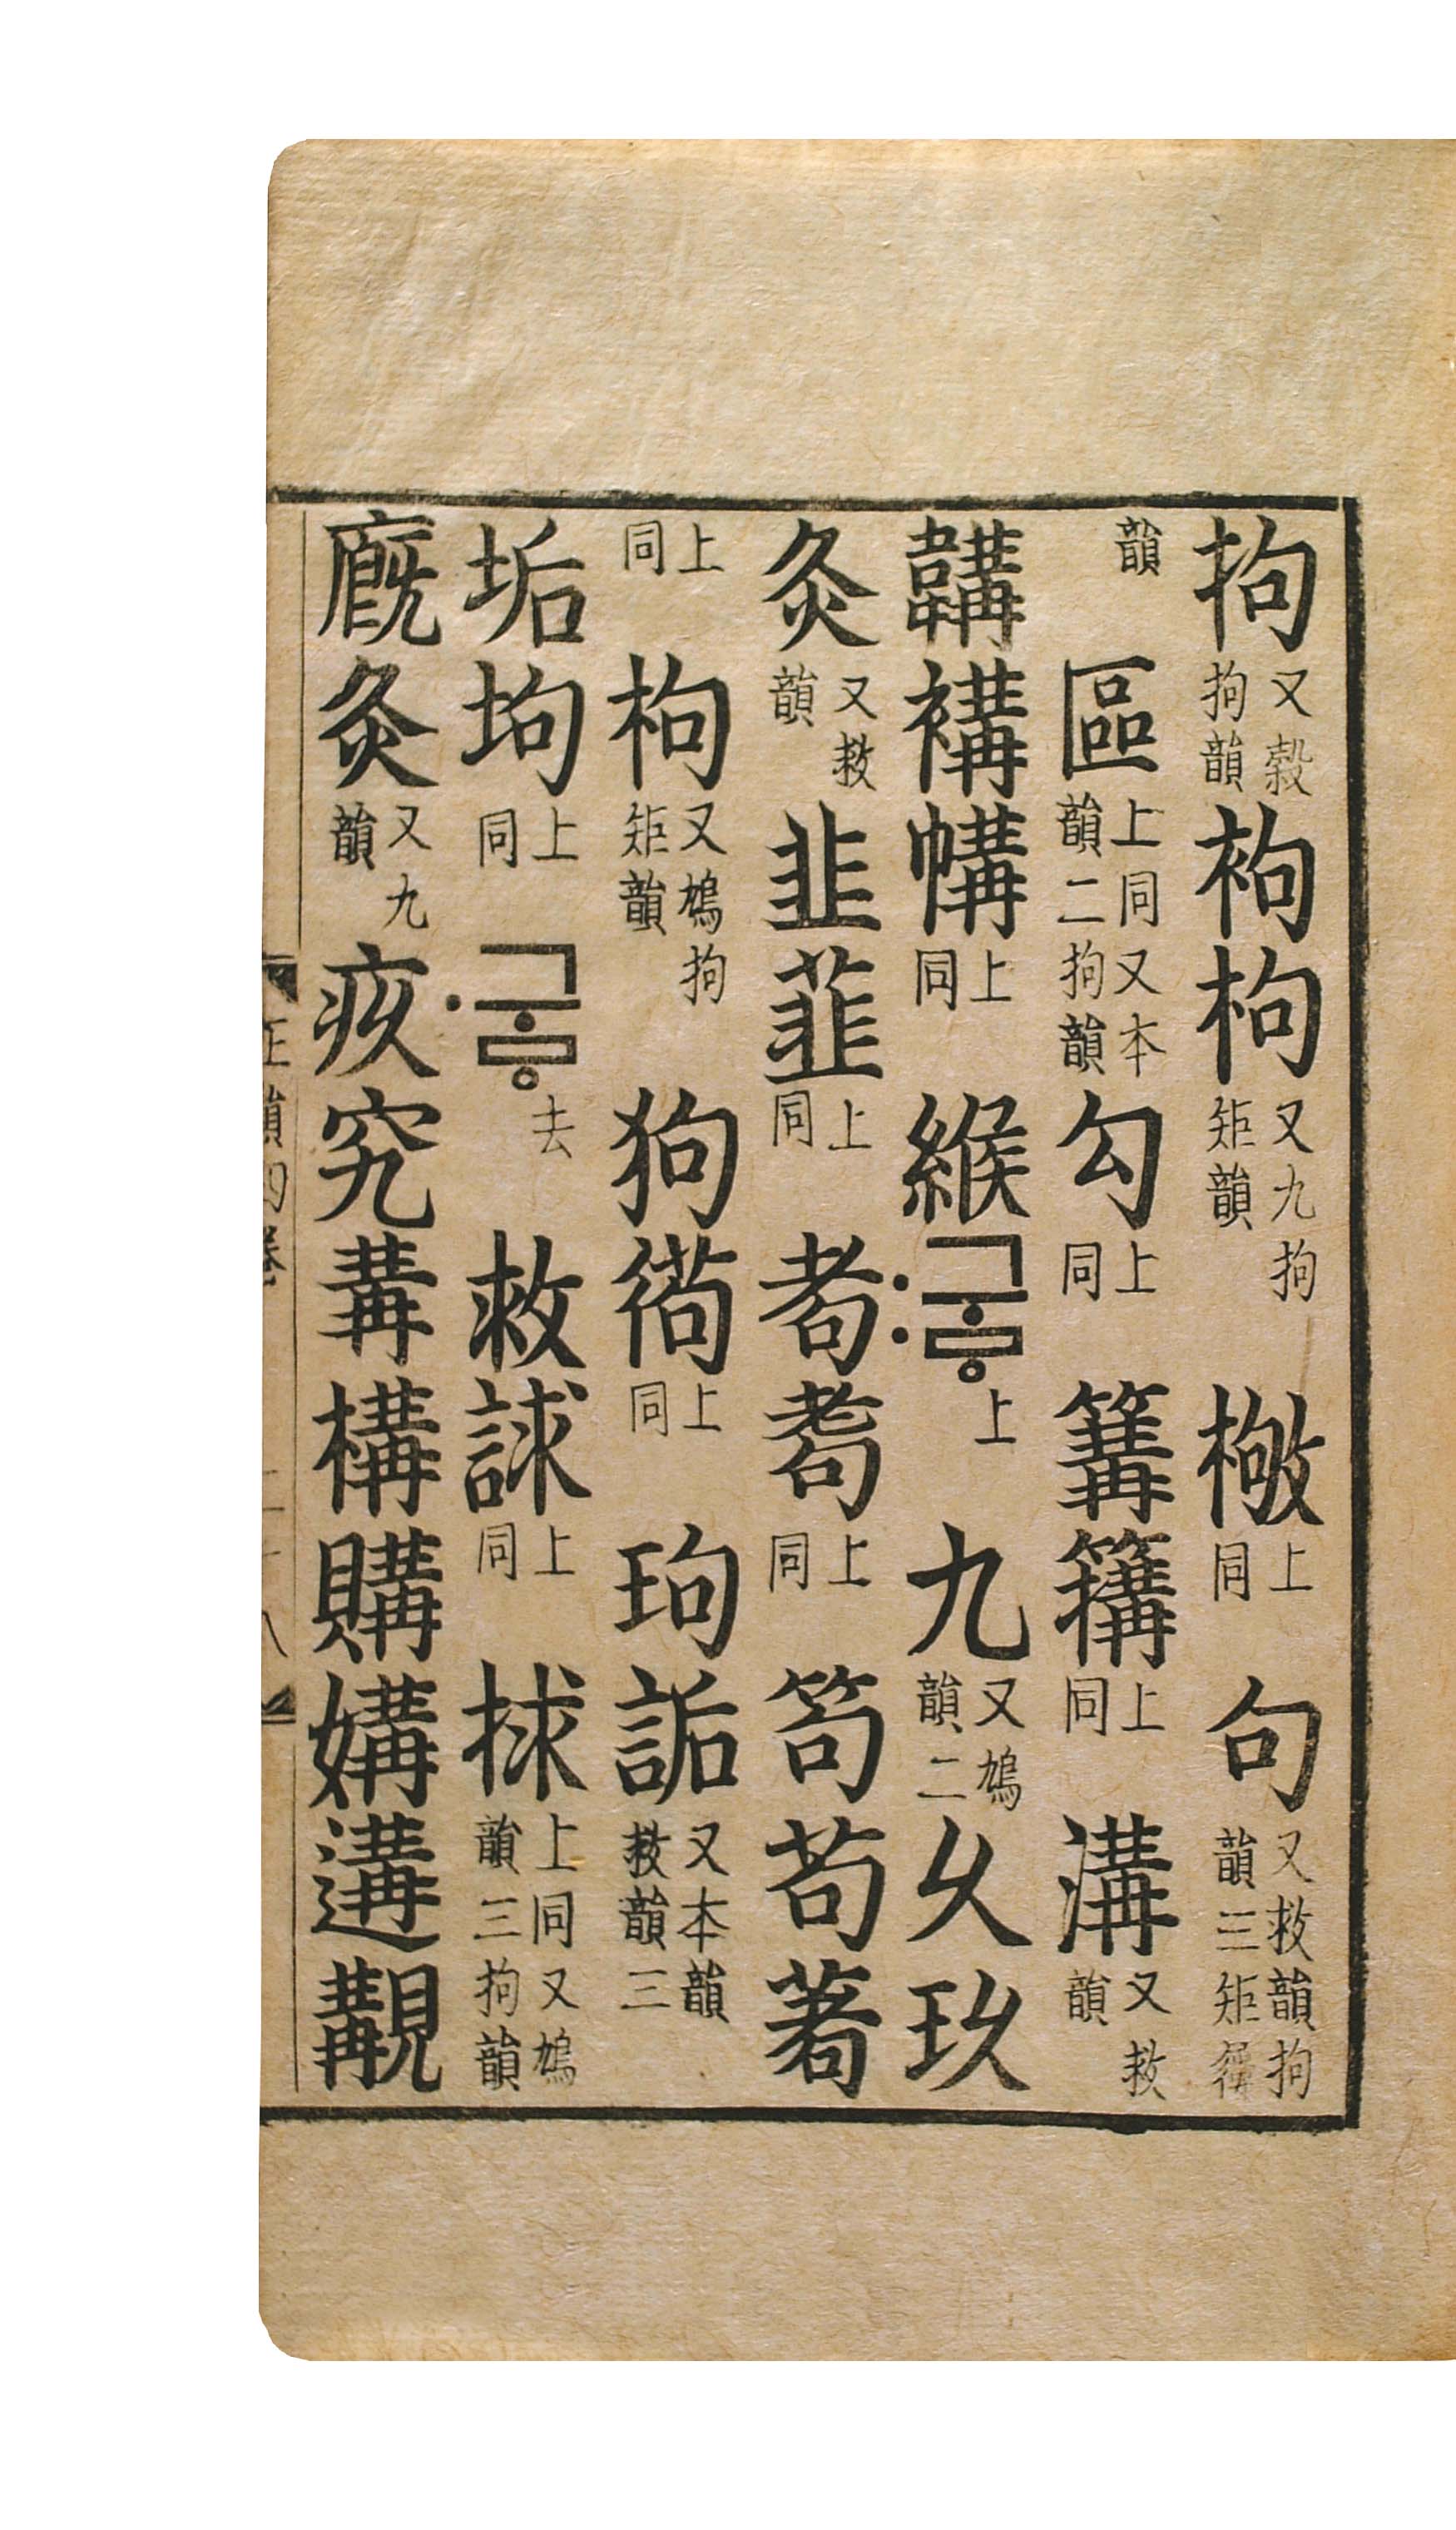 拘又穀拘韻袧枸又九拘矩韻上同句又救韻拘韻三矩
韻區上同又本韻二拘韻勾上同篝簼上同溝又救韻
韝褠㡚上同緱〯구ᇢ上九又鳩韻二久玖
灸又救韻韭韮上同耇耈上同笱苟
上同枸又鳩拘矩韻狗上同玽詬又本韻救韻三
垢坸上同〮구ᇢ去救上同捄上同又鳩韻三拘韻
廐灸又九韻疚究冓構購媾遘覯